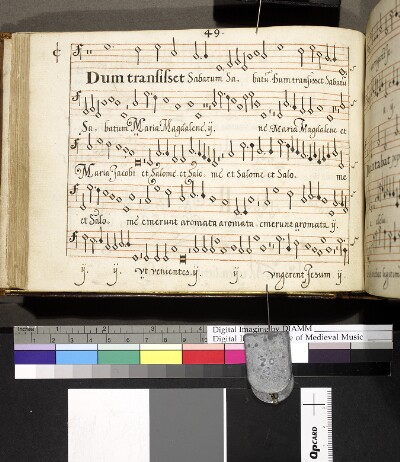 49.
Dum transisset Sabatum Sa. batū Dum transisset Sabatū
Sa. batum Maria Magdalene ij. ne Maria Magdalene et
Maria Jacobi et Salome et Salo. me et Salome et Salo. me
et Salo. me emerunt aromata aromata emerunt aromata ij.
ij. ij. vt venientes ij. ij. vngerent Jesum ij.
Digital Imaging by DIAMM
of Medieval Music
QPCARD